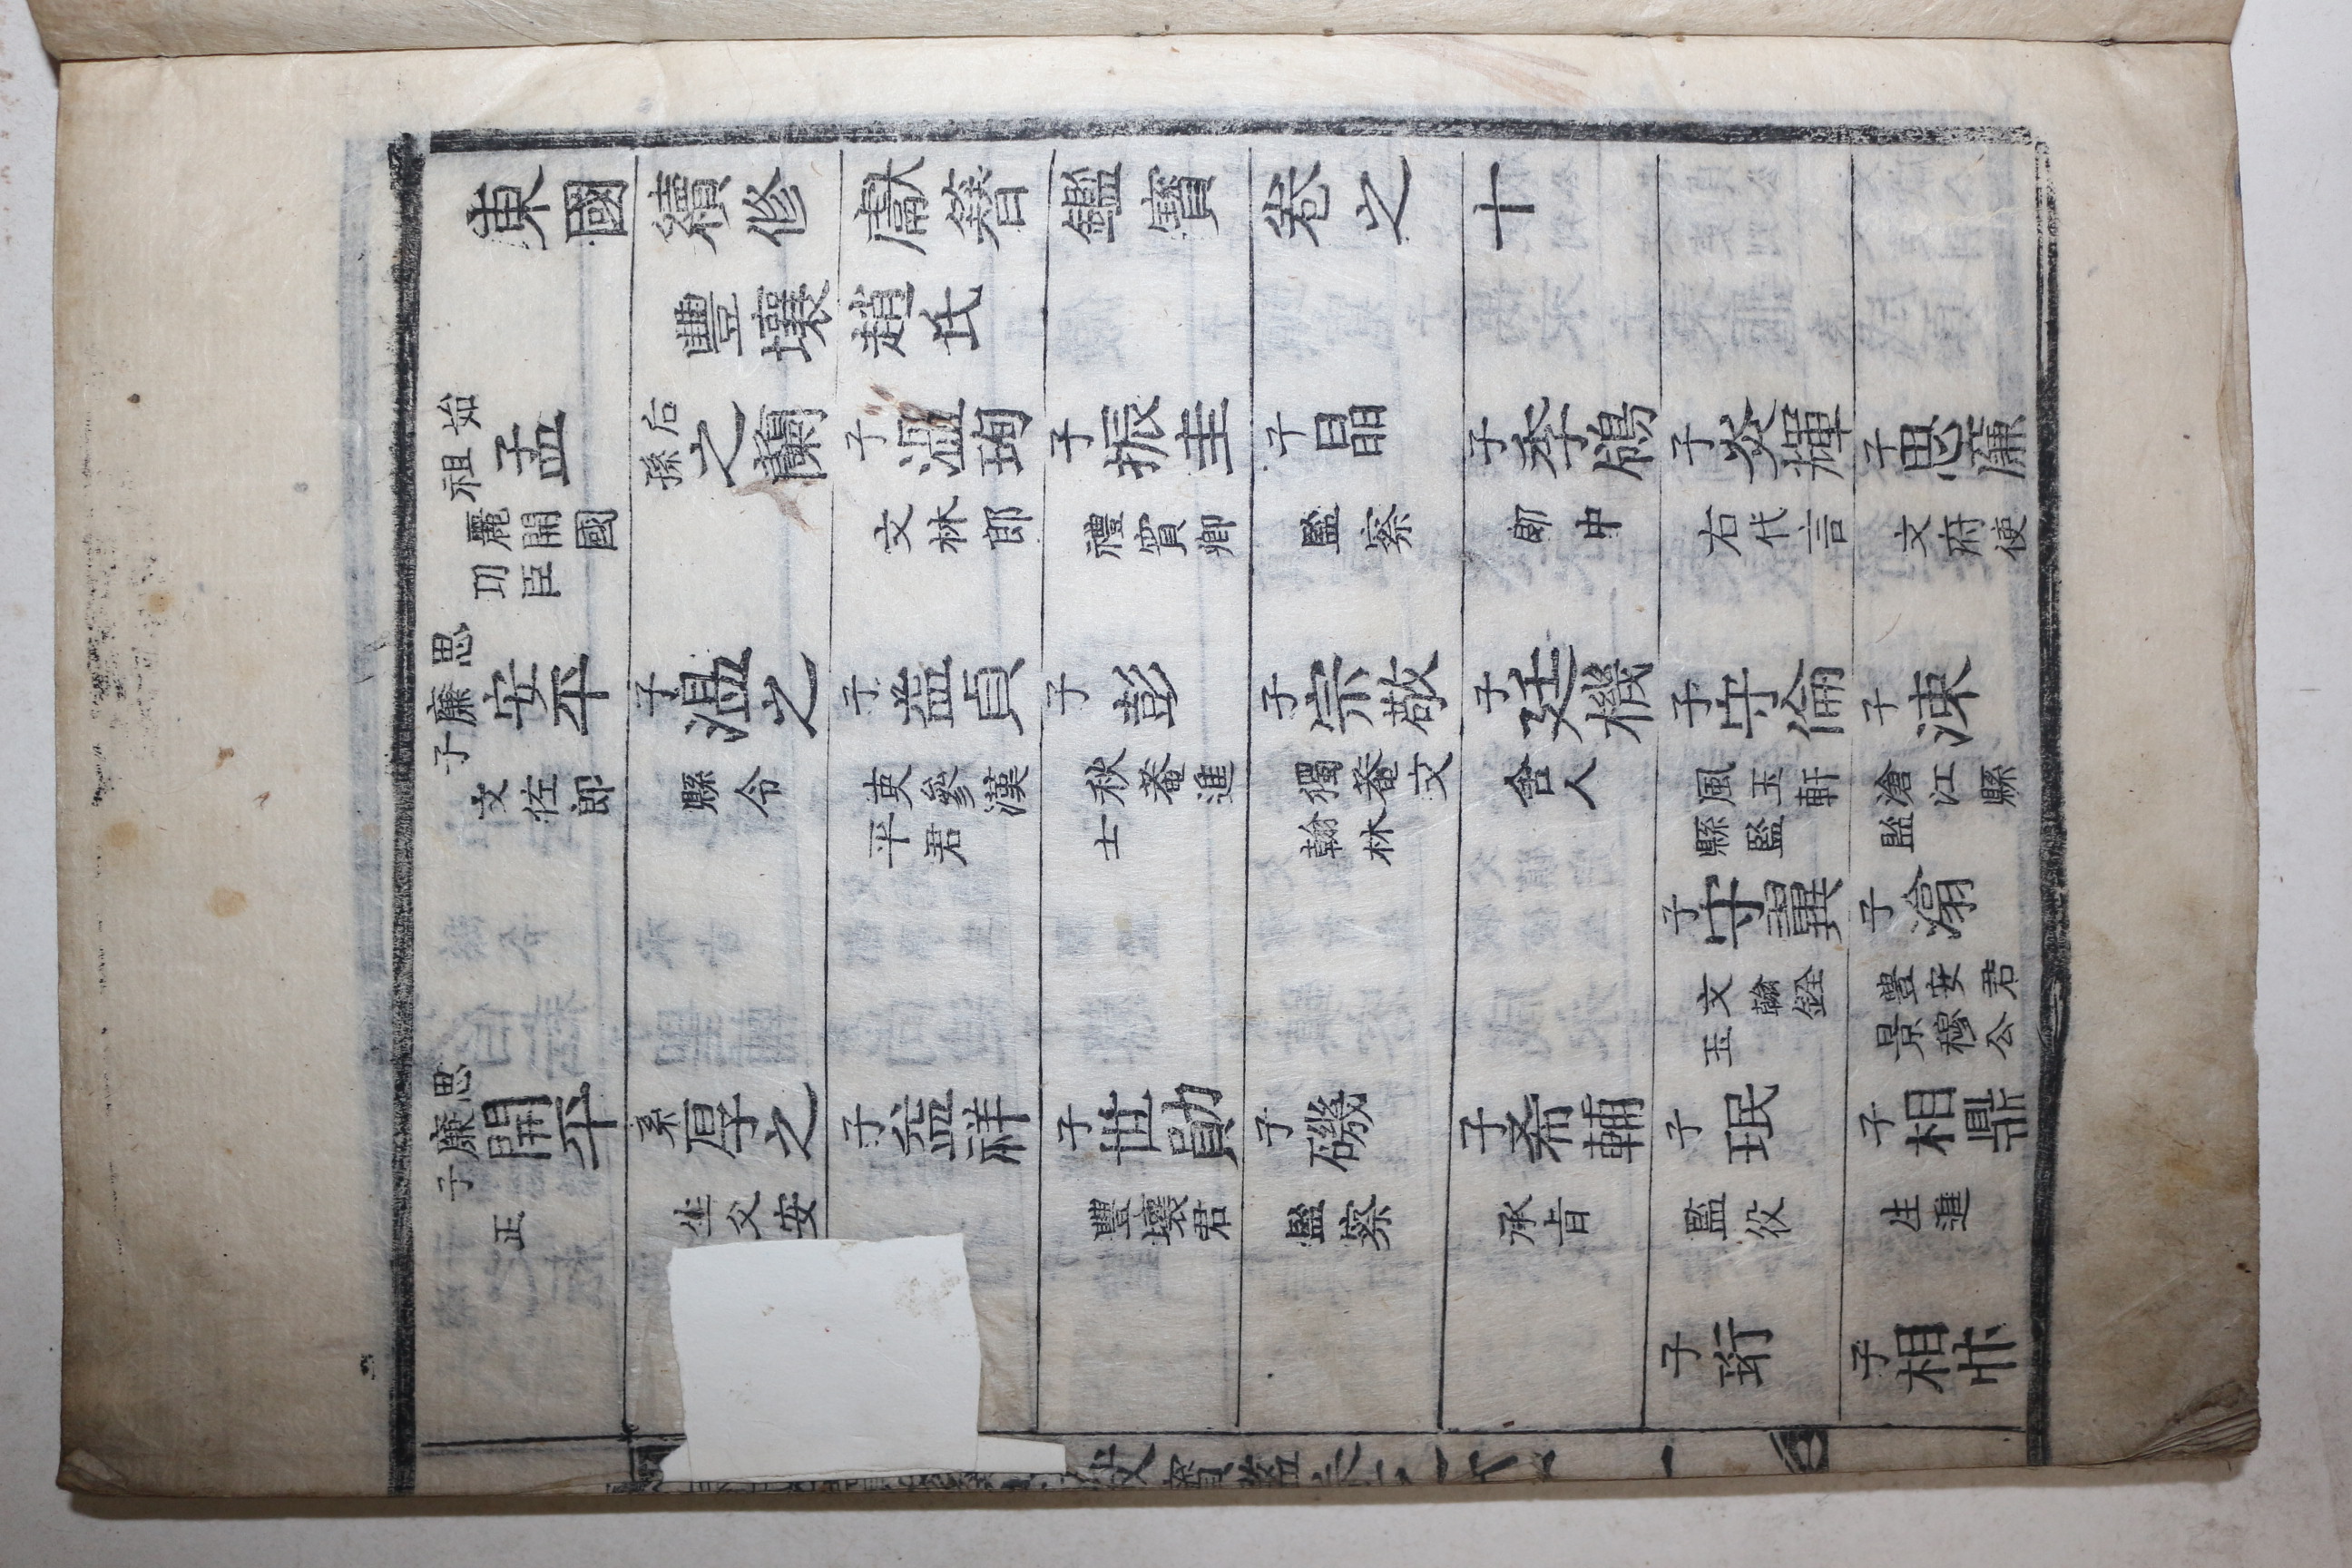 東國續修獻簪鑑寶卷之十
豐壤趙氏
始祖 孟 麗開國功臣
后孫 之藺
子 溫珣 文林郎
子 振圭 禮賓卿
子 晶 監察
子 季鴒 郎中
子 炎輝 右代言
子 思廉 文府使
思廉子 安平 文佐郎
子 溫之 縣令
子 益貞 英參漢平君
子 彭 秋菴進士
子 宗敬 獨菴文翰林
子 廷機 舍人
子 守倫 風玉軒縣監
子 涑 滄江縣監
子 守翼 文翰銓玉
子 滃 豊安君景穆公
思廉子 開平 正
系 厚之 生父安
子 益祥
子 世勛 豐壤君
子 磯 監察
子 希輔 承旨
子 珉 監役
子 相鼎 生進
子 珩
子 相忭